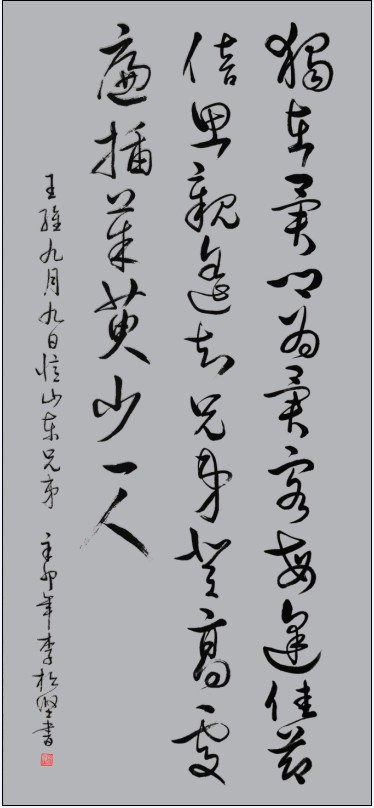 獨在異鄉為異客每逢佳節
倍思親遙知兄弟登高處
遍插茱萸少一人
王維九月九日憶山東兄弟 辛卯年李松堅書